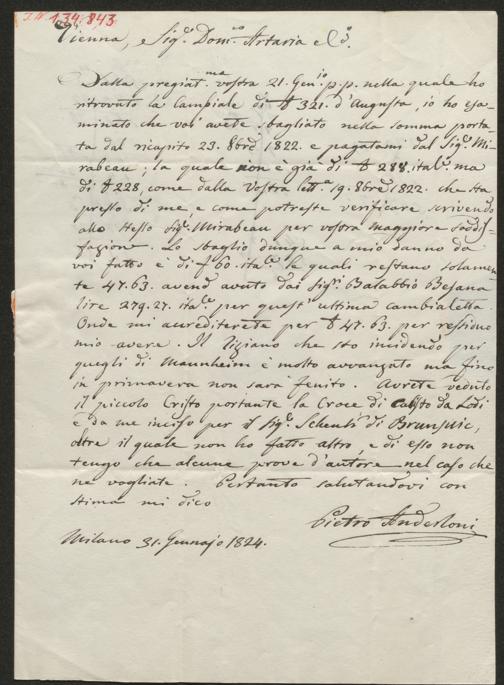 I.N. 134.843
Vienna, e Sig.ri Dom.co Artaria e C.o
Dalla pregiat.ma vostra 21. Gen.io p.p. nella quale ho
ritrovato la Cambiale di 321. d'Augusta, io ho esa-
minato che voi avete sbagliato nella somma porta-
ta dal ricapito 23. 8bre 1822. e pagatami dal Sig.r Mi-
rabeau; la quale non è già di 288. ital.e ma
di 228, come dalla vostra lett.a 19. 8bre 1822. che sta
presso di me, e come potreste verificare scrivendo
allo stesso Sig.r Mirabeau per vostra maggiore soddis-
fazione. Lo sbaglio dunque a mio danno da
voi fatto è di 60. ital.e le quali restano solamen-
te 47.63. avend'avuto dai Sig.ri Balabbio Besana
lire 279.27. ital.e per quest'ultima cambialetta.
Onde mi accrediterete per 47.63. per residuo
mio avere. Il Tiziano che sto incidendo per
quegli di Mannheim è molto avvanzato ma fino
in primavera non sarà fenito. Avrete veduto
il piccolo Cristo portante la Croce di Calisto da Lodi
e da me inciso per il Sig.r Schenk di Brunsvic,
oltre il quale non ho fatto altro, e di esso non
tengo che alcune prove d'autore nel caso che
ne vogliate. Pertanto salutandovi con
stima mi dico
Pietro Anderloni
Milano 31. Gennajo 1824.